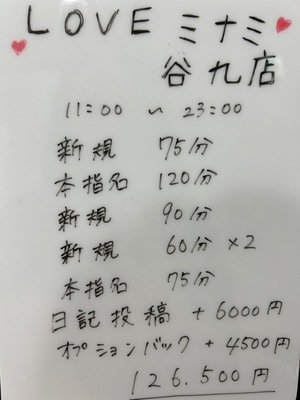 LOVE ミナミ
谷九店
11:00 ~ 23:00
新規 75分
本指名 120分
新規 90分
新規 60分 ×2
本指名 75分
日記投稿 + 6000円
オプションバック + 4500円
126.500円